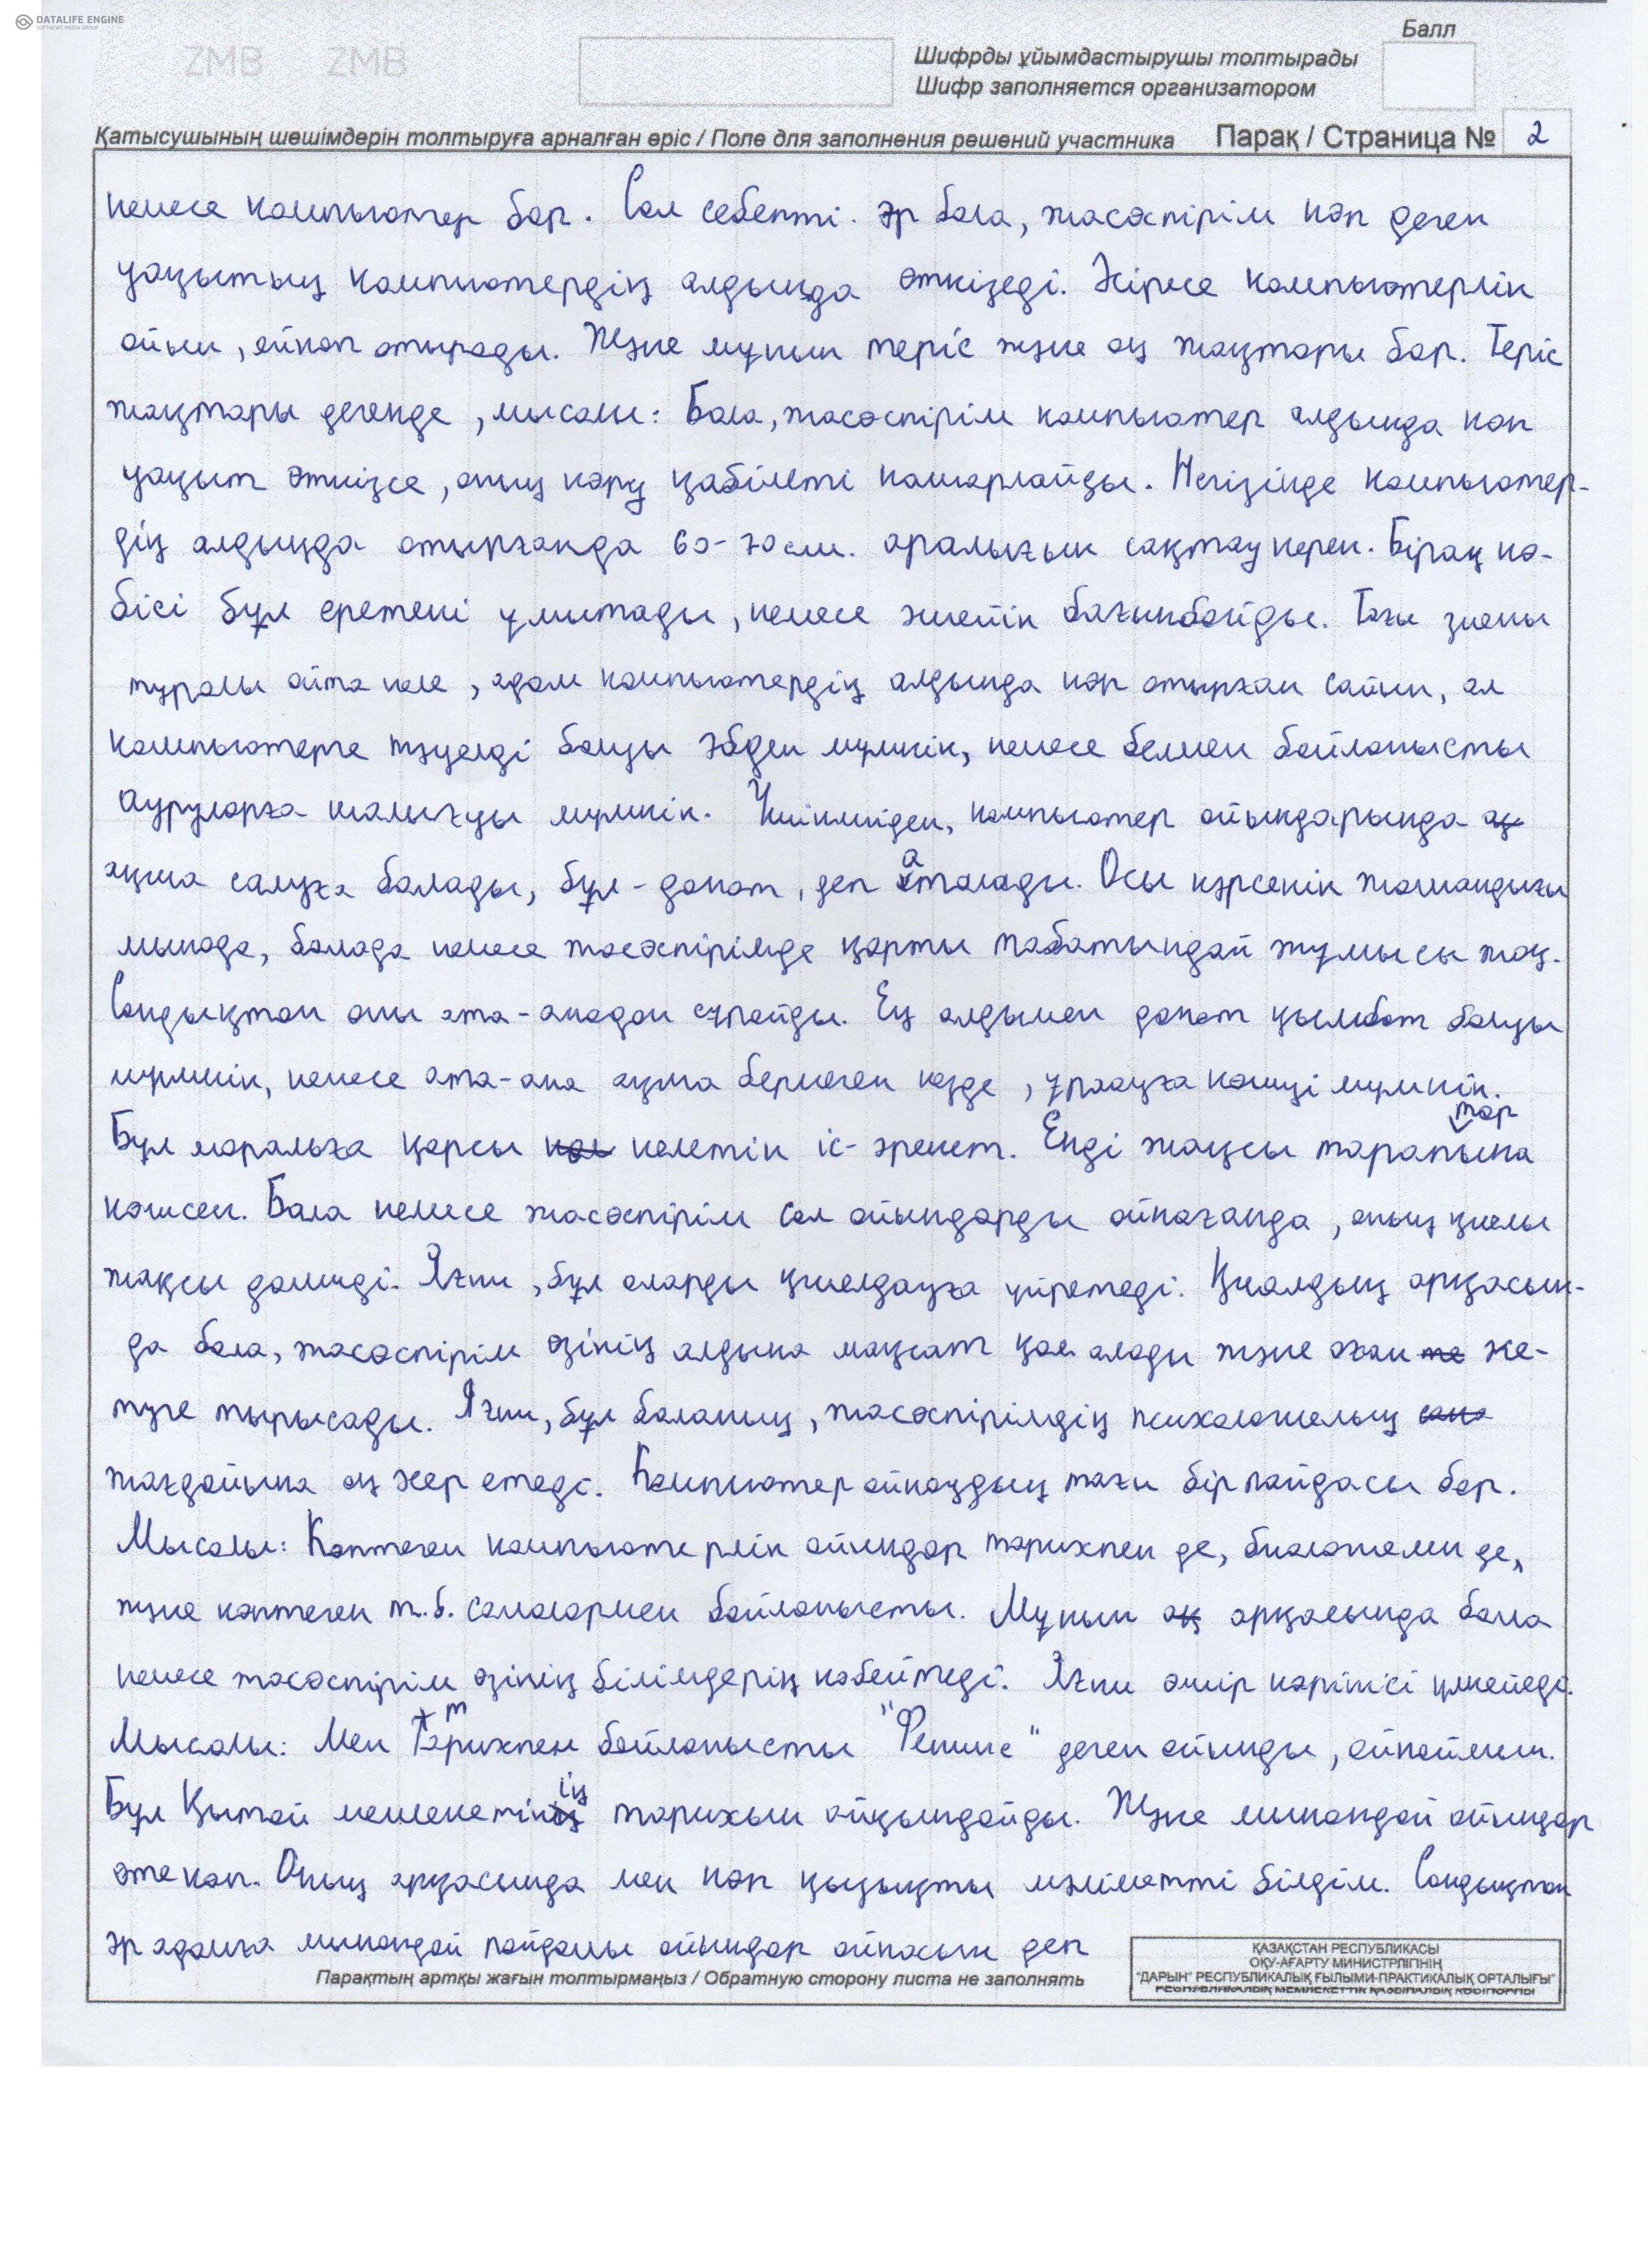 DATALIFE ENGINE
SOFTNEWS MEDIA GROUP
ZMB ZMB
Балл
Шифрды ұйымдастырушы толтырады
Шифр заполняется организатором
Қатысушының шешімдерін толтыруға арналған өріс / Поле для заполнения решений участника Парақ / Страница № 2
немесе компьютер бар. Сол себепті. әр бала, жасөспірім көп деген
уақытың компьютердің алдында өткізеді. Әсіресе компьютерлік
ойын, ойнап отырады. Және мұнын теріс және оң жақтары бар. Теріс
жақтары дегенде, мысалы: Бала, жасөспірім компьютер алдында көп
уақыт өткізсе, оның көру қабілеті нашарлайды. Негізінде компьютер-
дің алдыңда отырғанда 60-70 см. аралығын сақтау керек. Бірақ кө-
бісі бұл ережені ұмытады, немесе әшейін бағынбайды. Тағы зияны
туралы айта келе, адам компьютердің алдында көп отырған сайын, ол
компьютерге тәуелді болуы әбден мүмкін, немесе белмен байланысты
ауруларға шалығуы мүмкін. Үшіншіден, компьютер ойындарында
ақша салуға болады, бұл - донат, деп аталады. Осы нәрсенін жамандығы
мынада, балада немесе жасөспірімде қаржы табатындай жұмысы жоқ.
Сондықтан оны ата-анадан сұрайды. Ең алдымен донат қымбат болуы
мүмкін, немесе ата-ана ақша бермеген кезде, ұрлауға көшуі мүмкін.
Бұл моральға қарсы келетін іс-әрекет. Енді жақсы тараптарына
көшсек. Бала немесе жасөспірім сол ойындарды ойнағанда, оның қиялы
жақсы дамиді. Яғни, бұл оларды қиялдауға үйретеді. Қиялдың арқасын-
да бала, жасөспірім өзінің алдына мақсат қоя алады және оған же-
туге тырысады. Яғни, бұл баланың, жасөспірімдің психологиялық
жағдайына оң әсер етеді. Компьютер ойнаудың тағы бір пайдасы бар.
Мысалы: Көптеген компьютерлік ойындар тарихпен де, биологиямен де,
және көптеген т.б. салалармен байланысты. Мұнын арқасында бала
немесе жасөспірім өзінің білімдерің көбейтеді. Яғни өмір көрінісі үлкейеді.
Мысалы: Мен тарихпен байланысты деген ойынды, ойнаймын.
Бұл Қытай мемлекетінің тарихын айқындайды. Және мынандай ойындар
өте көп. Оның арқасында мен көп қызықты мәліметті білдім. Сондықтан
әр адамға мынандай пайдалы ойындар ойнасын деп
Парақтың артқы жағын толтырмаңыз / Обратную сторону листа не заполнять
ҚАЗАҚСТАН РЕСПУБЛИКАСЫ
ОҚУ-АҒАРТУ МИНИСТРЛІГІНІҢ
"ДАРЫН" РЕСПУБЛИКАЛЫҚ ҒЫЛЫМИ-ПРАКТИКАЛЫҚ ОРТАЛЫҒЫ"
РЕСПУБЛИКАЛЫҚ МЕМЛЕКЕТТІК ҚАЗЫНАЛЫҚ КӘСІПОРНЫ